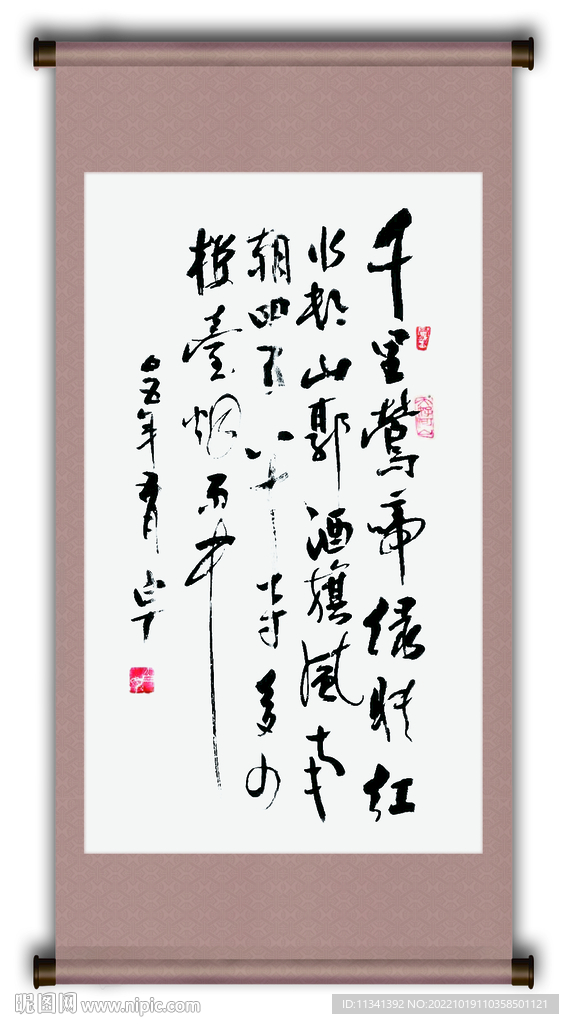 千里鶯啼绿映红
水村山郭酒旗風南
朝四百八十寺多少
楼臺烟雨中
〇五年
昵图网 www.nipic.com
ID:11341392 NO:20221019110358501121